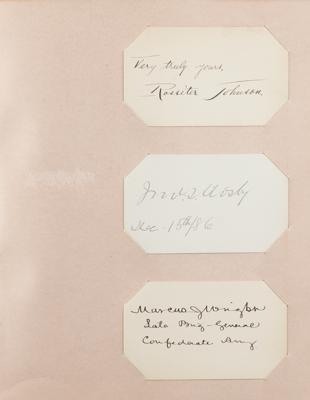 Very truly yours,
Rossiter Johnson.
Jno. S. Mosby
Dec. 15th/86
Marcus J Wright
Late Brig-General
Confederate Army